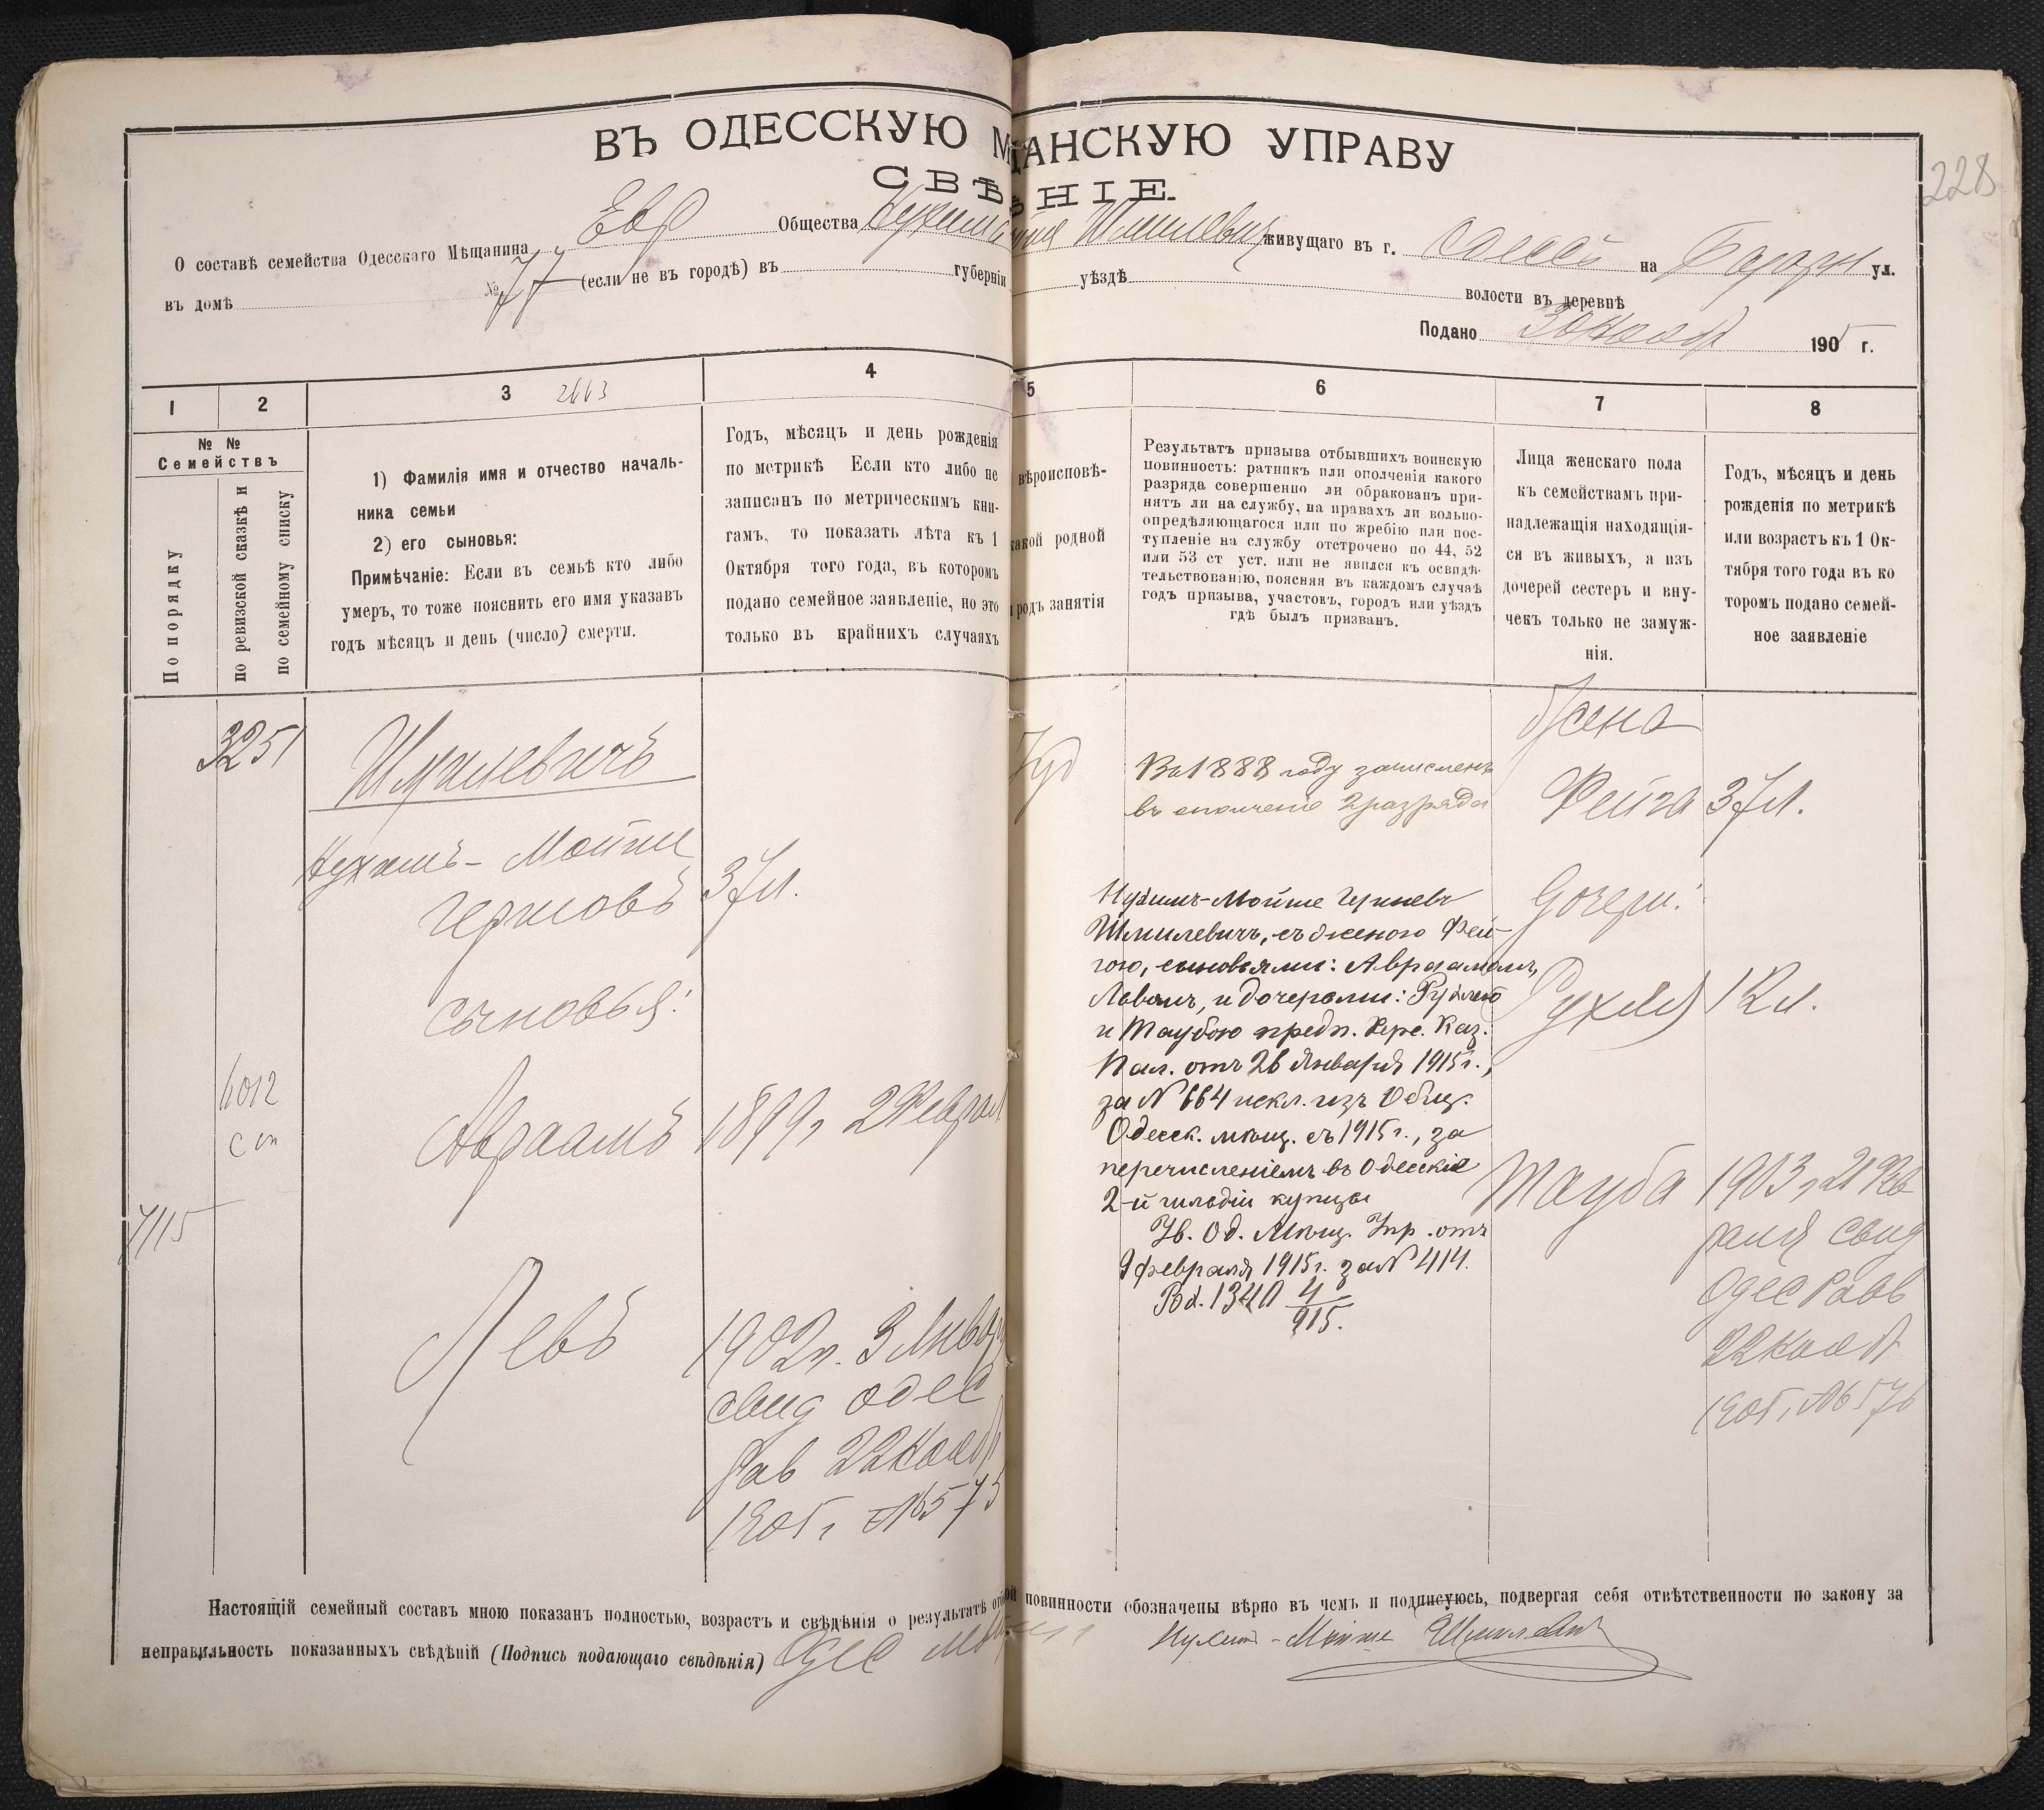 ВЪ ОДЕССКУЮ М ЩАНСКУЮ УПРАВУ
СВѢ НІЕ.
228
О составѣ семейства Одесскаго Мѣщанина Евр Общества Нухима Шмилевич живущаго въ г. Одессѣ на ул.
въ домѣ № 77 (если не въ городѣ) въ губерніи уѣздѣ волости въ деревнѣ
Подано 30 Нояб 1905 г.
1 2 3 2663 4 5 6 7 8
№ №
Семействъ
По порядку
по ревизской сказкѣ и
по семейному списку
1) Фамилія имя и отчество началь-
ника семьи
2) его сыновья:
Примѣчаніе: Если въ семьѣ кто либо
умеръ, то тоже пояснить его имя указавъ
годъ мѣсяцъ и день (число) смерти.
Годъ, мѣсяцъ и день рожденія
по метрикѣ Если кто либо не
записанъ по метрическимъ кни-
гамъ, то показать лѣта къ 1
Октября того года, въ которомъ
подано семейное заявленіе, но это
только въ крайнихъ случаяхъ
вѣроисповѣ-
какой родной
родъ занятія
Результатъ призыва отбывшихъ воинскую
повинность: ратникъ или ополченія какого
разряда совершенно ли обракованъ при-
нятъ ли на службу, на правахъ ли вольно-
опредѣляющагося или по жребію или пос-
тупленіе на службу отстрочено по 44, 52
или 53 ст уст. или не явился къ освидѣ-
тельствованію, поясняя въ каждомъ случаѣ
годъ призыва, участокъ, городъ или уѣздъ
гдѣ былъ призванъ.
Лица женскаго пола
къ семействамъ при-
надлежащія находящія-
ся въ живыхъ, а изъ
дочерей сестеръ и вну-
чекъ только не замуж-
нія.
Годъ, мѣсяцъ и день
рожденія по метрикѣ
или возрастъ къ 1 Ок-
тября того года въ ко
торомъ подано семей-
ное заявленіе
3251
Шмилевичъ
Нухимъ-Мойше
Гершовъ 37 л.
сыновья:
4012
сп
Авраамъ 1899 г 2 Феврал
7115
Левъ
1902 г. 3 Январ
свид Одес
Рав 22 Нояб
1905 г, № 573
Іуд
Въ 1888 году зачисленъ
въ ополченіе 2 разряда
Нухимъ-Мойше Гершевъ
Шмилевичъ, съ женою Фей-
гою, сыновьями: Авраамомъ,
Львомъ, и дочерьми: Рухлею
и Таубою предп. Хере. Каз.
Пал. отъ 26 Января 1915 г.,
за № 664 искл. изъ Общ.
Одесск. мѣщ. съ 1915 г., за
перечисленіемъ въ Одесскіе
2-й гильдіи купцы
Ув. Од. Мѣщ. Упр. отъ
9 февраля 1915 г. за № 414.
Вх. 1340 4/915.
Жена
Фейга 37 л.
Дочери:
Рухля 12 л.
Тауба 1903 г, 21 Фев
раля свид
Одес Рав
22 Нояб
1905 г, № 576
Настоящій семейный составъ мною показанъ полностью, возрастъ и свѣдѣнія о результатѣ отб ой повинности обозначены вѣрно въ чемъ и подписуюсь, подвергая себя отвѣтственности по закону за
неправильность показанныхъ свѣдѣній (Подпись подающаго свѣдѣнія) Одес Нухимъ-Мойше Шмилевичъ